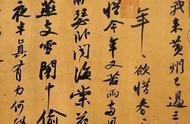 我来黄州已過三
年欲惜春
惜今年又苦雨兩月
瑟卧聞海棠花
燕支雪闇中偷
夜半真有力何